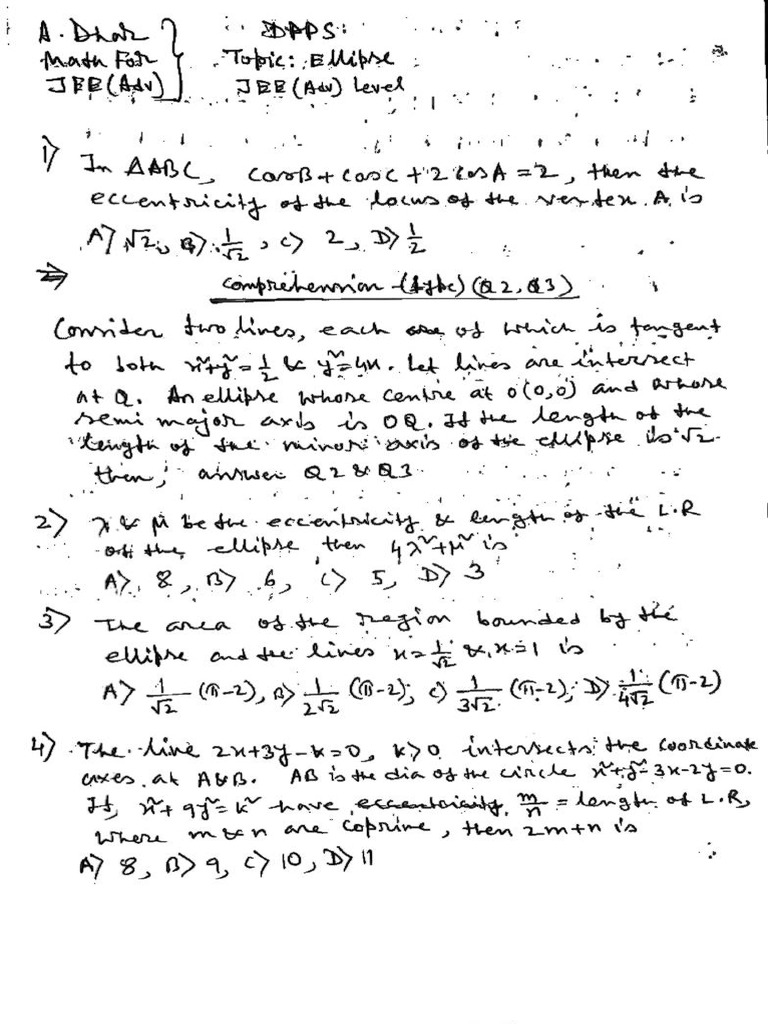 A. Dhar
Math For
JEE (Adv)
DPPS:
Topic: Ellipse
JEE (Adv) Level
1) In ΔABC, cosB + cosC + 2cosA = 2, then the
eccentricity of the locus of the vertex A is
A) √2, B) 1/√2, C) 2, D) 1/2
Comprehension (type) (Q2, Q3)
Consider two lines, each of which is tangent
to both x²+y² = 1/2 & y² = 4x. Let lines are intersect
at Q. An ellipse whose centre at O(0,0) and whose
semi major axis is OQ. If the length of the
length of the minor axis of the ellipse is √2
then, answer Q2 & Q3
2) λ & μ be the eccentricity & length of the L.R
of the ellipse then 4λ²+μ² is
A) 8, B) 6, C) 5, D) 3
3) The area of the region bounded by the
ellipse and the lines x = 1/√2 & x = 1 is
A) 1/√2 (π-2), B) 1/2√2 (π-2), C) 1/3√2 (π-2), D) 1/4√2 (π-2)
4) The line 2x+3y-k=0, k>0 intersects the coordinate
axes at A&B. AB is the dia of the circle x²+y²-3x-2y=0.
If, x²+9y²=k² have m/n = length of L.R,
where m & n are coprime, then 2m+n is
A) 8, B) 9, C) 10, D) 11